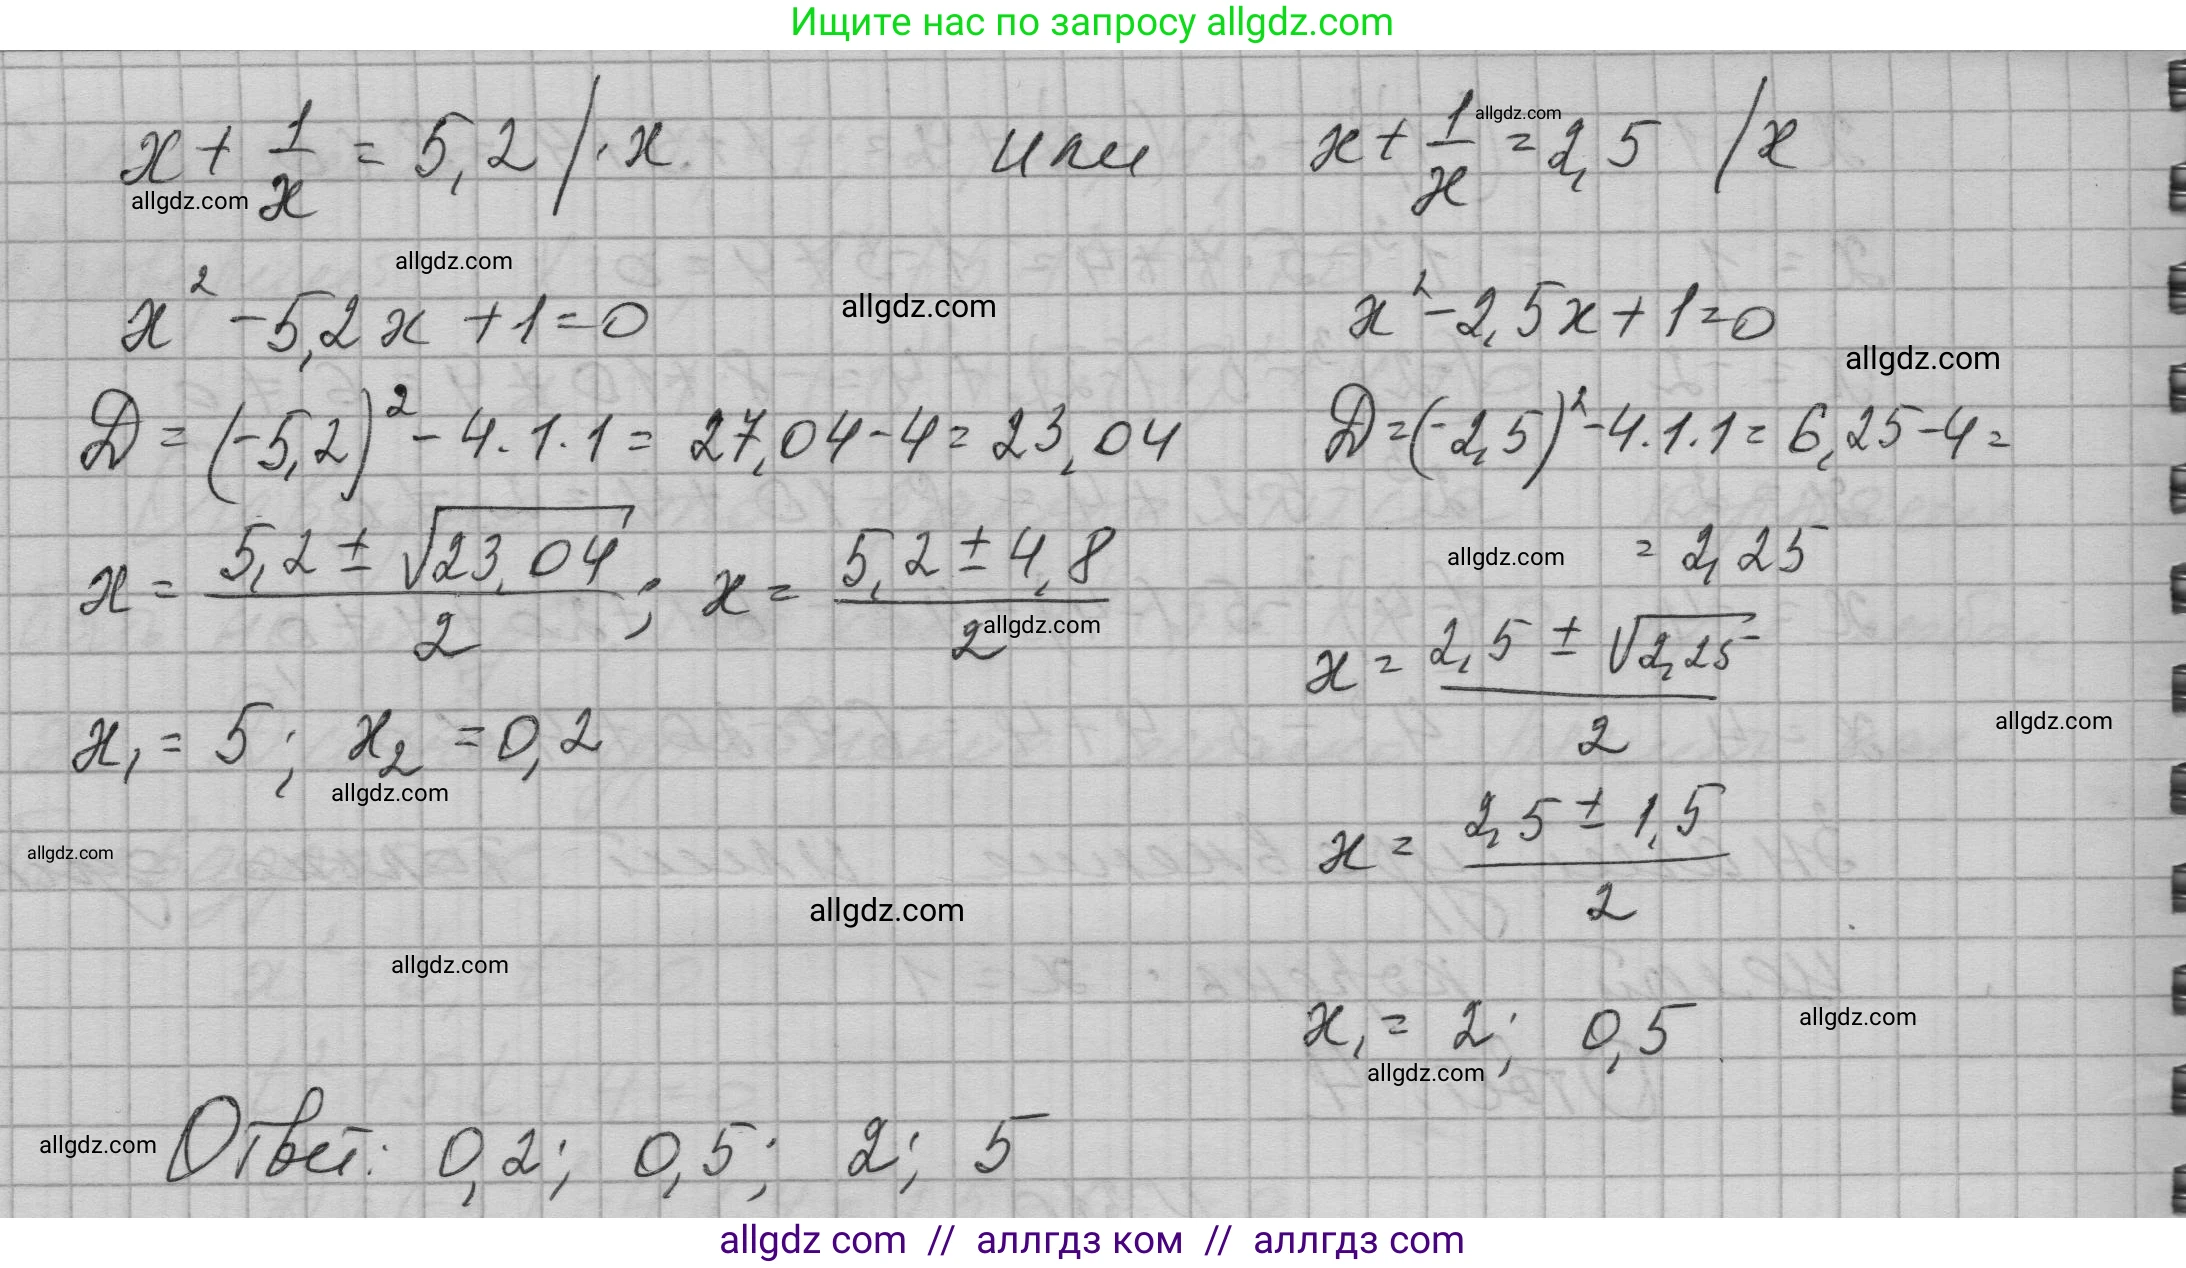 Ищите нас по запросу allgdz.com
x + 1/x = 5,2 /·x или x + 1/x = 2,5 /x
allgdz.com
allgdz.com
allgdz.com
x² - 5,2x + 1 = 0 x² - 2,5x + 1 = 0
allgdz.com
allgdz.com
D = (-5,2)² - 4·1·1 = 27,04 - 4 = 23,04 D = (-2,5)² - 4·1·1 = 6,25 - 4 =
= 2,25
allgdz.com
x = (5,2 ± √23,04)/2 ; x = (5,2 ± 4,8)/2
allgdz.com
x = (2,5 ± √2,25)/2
allgdz.com
x₁ = 5; x₂ = 0,2
allgdz.com
x = (2,5 ± 1,5)/2
allgdz.com
allgdz.com
allgdz.com
x₁ = 2; 0,5
allgdz.com
allgdz.com
allgdz.com
Ответ: 0,2; 0,5; 2; 5
allgdz com // аллгдз ком // аллгдз com